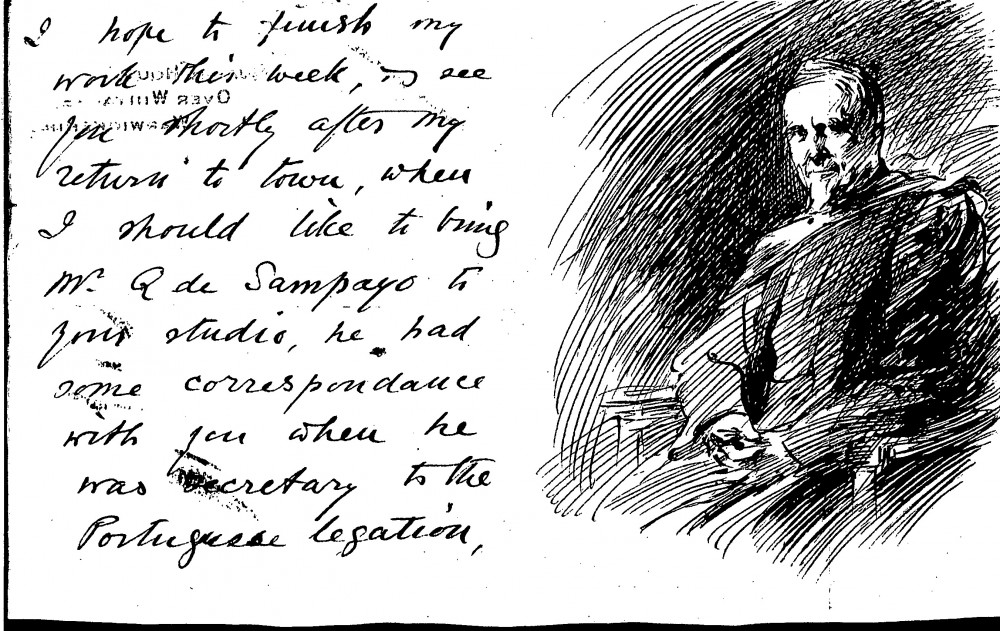 I hope to finish my
work this week, & see
you shortly after my
return to town, when
I should like to bring
Mr. Q de Sampayo to
your studio, he had
some correspondance
with you when he
was secretary to the
Portuguese legation,
OVER WHITACRE